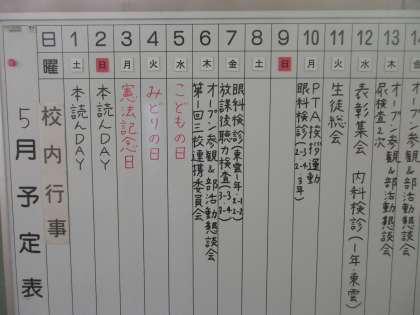 5月予定表
日 1 2 3 4 5 6 7 8 9 10 11 12 13 14
曜 土 日 月 火 水 木 金 土 日 月 火 水 木 金
校内行事
本読んDAY
本読んDAY
憲法記念日
みどりの日
こどもの日
オープン参観&部活動懇談会
第1回三校連携委員会
眼科検診(東雲
放課後聴力検査
PTA挨拶運動
眼科検診(2-3,2-4,3年)
生徒総会
表彰集会 内科検診(1年・東雲)
オープン参観&部活動懇談会
尿検査2次
オープン参観&部活動懇談会